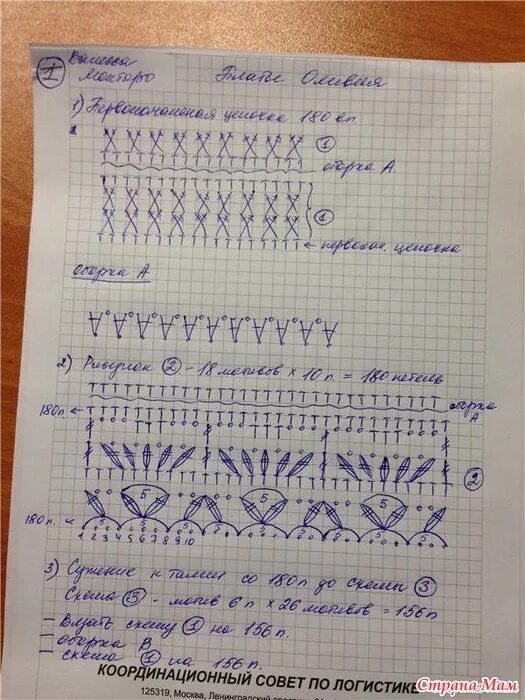 1 Ванесса
Монторо Платье Оливия
1) Первоначальная цепочка 180 вп.
1
оборка А.
1
первонач. цепочка
оборка А
2) Рисунок 2 - 18 мотивов × 10 п. = 180 петель
оборка
А
180п.
2
5 5 5
180п.
5 5 5 5
1 2 3 4 5 6 7 8 9 10
3) Сужение к талии со 180п до схемы 3
Схема 3 - мотив 6 п × 26 мотивов = 156п
- Вязать схему 1 на 156п.
- оборка В
- схема 1 на 156 п.
КООРДИНАЦИОННЫЙ СОВЕТ ПО ЛОГИСТИКЕ
125319, Москва, Ленинградский
Страна-Мам